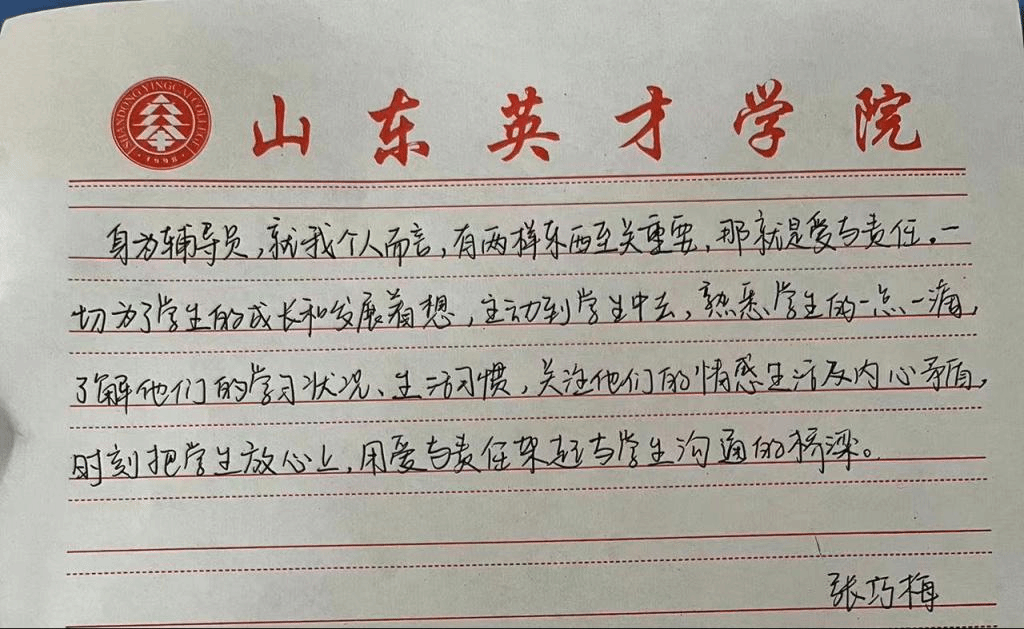 SHANDONG YINGCAI COLLEGE
·1998·
山东英才学院
身为辅导员,就我个人而言,有两样东西至关重要,那就是爱与责任。一
切为了学生的成长和发展着想,主动到学生中去,熟悉学生的一点一滴,
了解他们的学习状况、生活习惯,关注他们的情感生活及内心矛盾,
时刻把学生放心上,用爱与责任架起与学生沟通的桥梁。
张巧梅